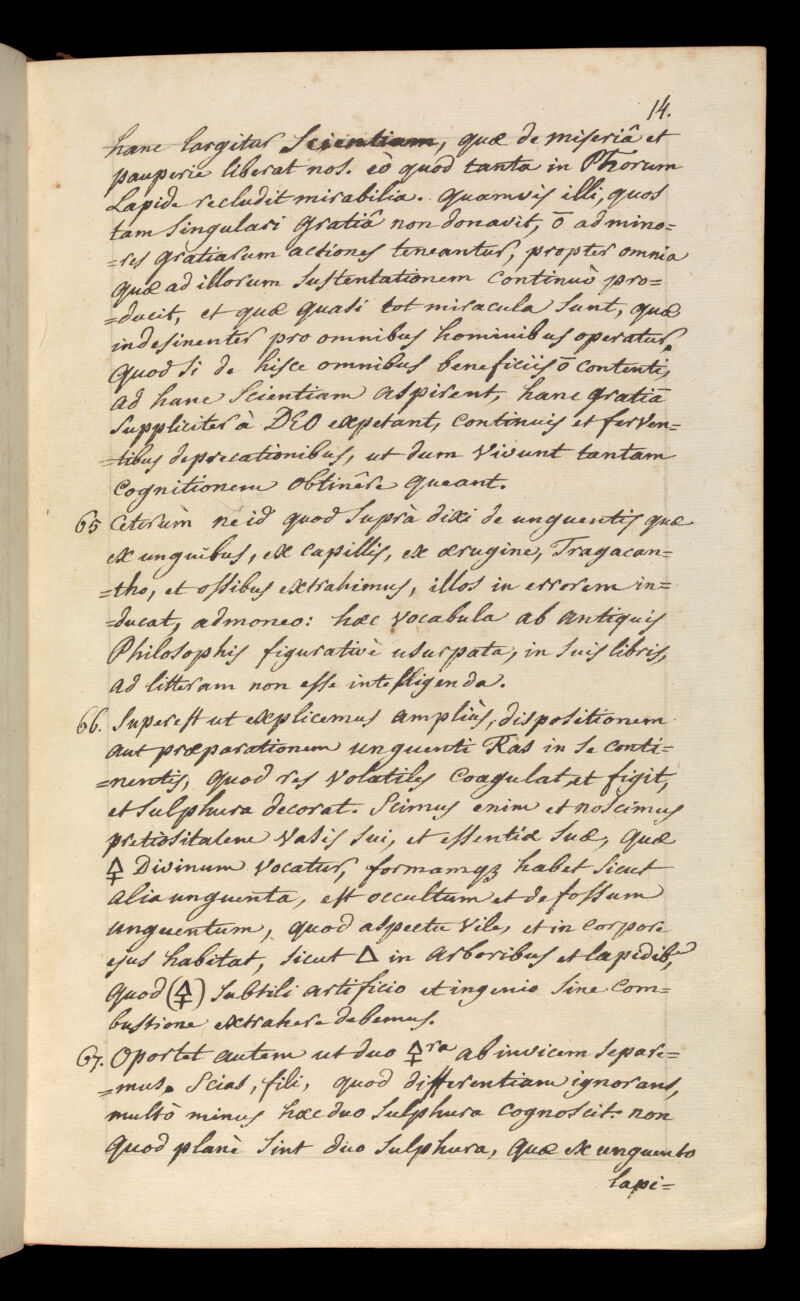 14.
hanc largitur Scientiam, quæ de miseriâ et
pauperie liberat nos. eò quod tanta in Phorum
Lapide recludit mirabilia. Quamvis illi, quos
tam singulari gratiâ non donavit, ō ad mino=
=res gratiarum actiones teneantur, propter omnia
quæ ad illorum sustentationem continuò pro=
=ducit, et quæ quasi tot miracula sunt, quæ
indesinenter pro omnibus hominibus operatur.
Quod si de hisce omnibus beneficiis ō contenti,
ad hanc Scientiam aspirent, hanc gratiā
suppliciter à DEO expetant, continuis et ferven=
=tibus deprecationibus, ut dum vivunt tantam
cognitionem obtinêre queant.
65 Ceterùm ne id quod suprà dixi de unguentis quæ
ex unguibus, ex capillis, ex ærugine, Tragacan=
=tho, et ossibus extrahimus, illos in errorem in=
=ducat, admoneo: hæc vocabula ab antiquis
Philosophis figurativè usurpata, in suis libris,
ad litteram non esse intelligenda.
66. Superest ut explicemus ampliùs, dispositionem
aut præparationem unguenti Ras in se conti=
=nentis, quod res volatiles coagulat et figit,
et sulphura decorat. Scimus enim et noscimus
pretiositatem vasis sui, et essentiæ suæ, quæ
🜍 Divinum vocatur, formamqꝫ habet sicut
alia unguenta, est occultum et defossum
unguentum, quod aspectu vile, et in corpore
ejus habitat, sicut 🜂 in arboribus et lapidib9,
quod (🜍) subtili artificio et ingenio sine com=
bustione extrahere debemus.
67. Oportet autem ut duo 🜍ra ab invicem separe=
=mus. Scias, fili, quod differentiam ignorans,
multò minus hæc duo Sulphura cognoscit. non
quod planè sint duo sulphura, quæ ex unguento
lapi=